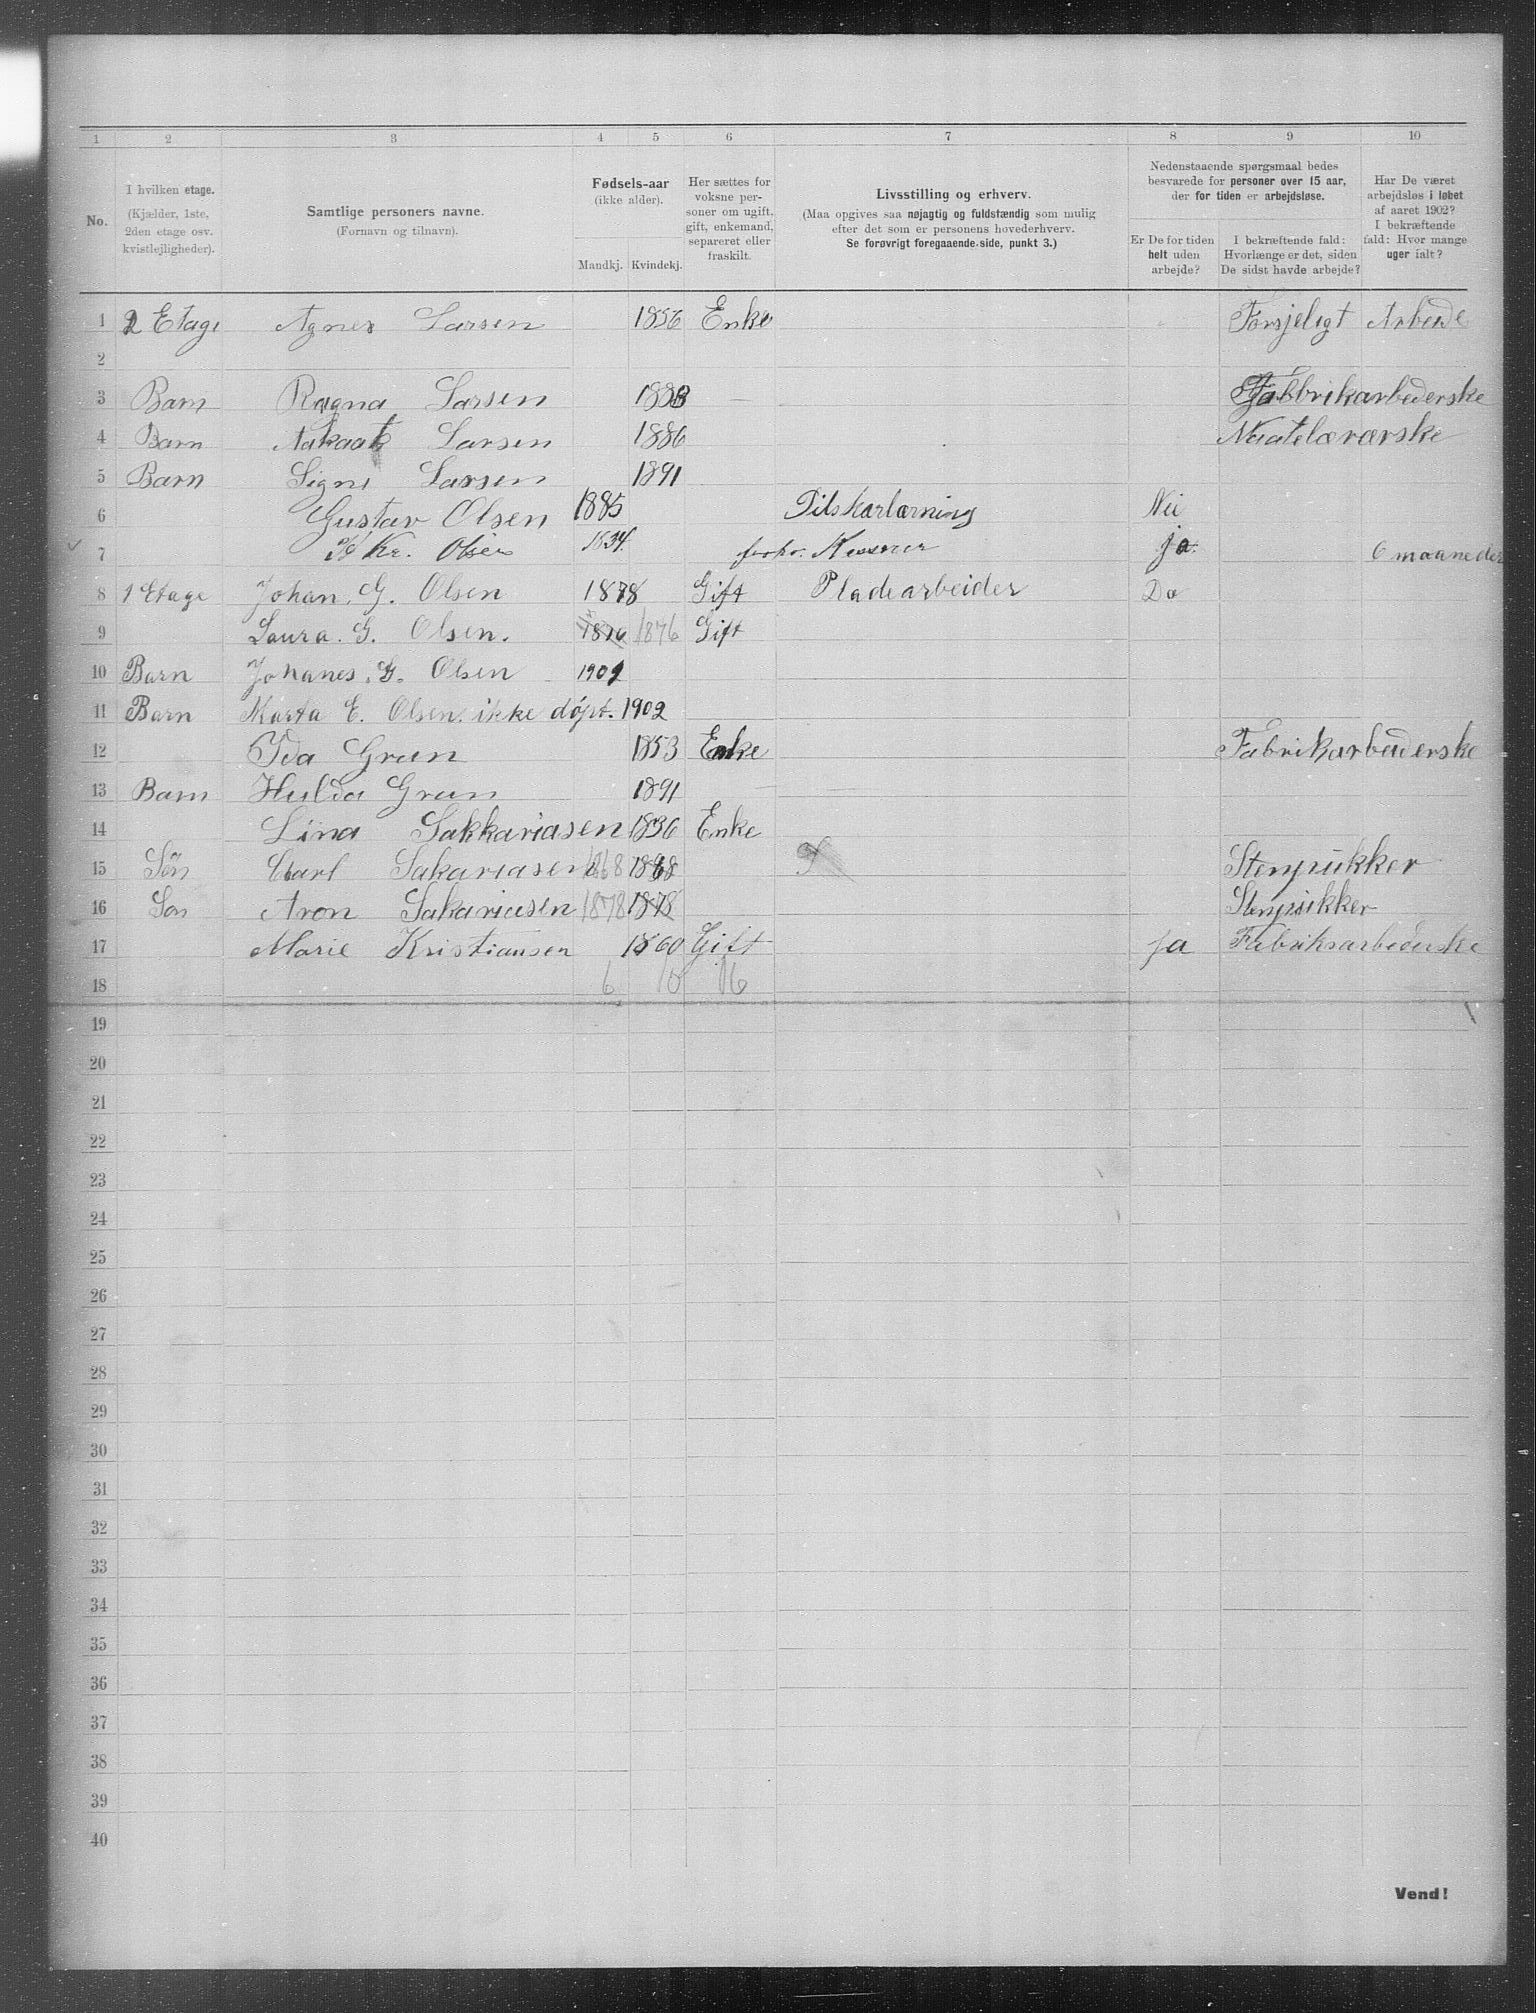 1 2 3 4 5 6 7 8 9 10
No.
I hvilken etage.
(Kjælder, 1ste,
2den etage osv.
kvistlejligheder).
Samtlige personers navne.
(Fornavn og tilnavn).
Fødsels-aar
(ikke alder).
Mandkj. Kvindekj.
Her sættes for
voksne per-
soner om ugift,
gift, enkemand,
separeret eller
fraskilt.
Livsstilling og erhverv.
(Maa opgives saa nøjagtig og fuldstændig som mulig
efter det som er personens hovederhverv.
Se forøvrigt foregaaende side, punkt 3.)
Nedenstaaende spørgsmaal bedes
besvarede for personer over 15 aar,
der for tiden er arbejdsløse.
Er De for tiden
helt uden
arbejde?
I bekræftende fald:
Hvorlænge er det, siden
De sidst havde arbejde?
Har De været
arbejdsløs i løbet
af aaret 1902?
I bekræftende
fald: Hvor mange
uger ialt?
1 2 Etage Agnes Larsen 1856 Enke Forsjeligt Arbeide
2
3 Barn Ragna Larsen 1883 Fabbrikarbederske
4 Barn Larsen 1886
5 Barn Signe Larsen 1891
6 Gustav Olsen 1885 Nei
7 Kr. Olsen 1834 ja 6 maaneder
8 1 Etage Johan. G. Olsen 1878 Gift Pladearbeider Do
9 Laura. G. Olsen. 1876 1876 Gift
10 Barn Johanes. G. Olsen 1901
11 Barn Marta E. Olsen. ikke døpt. 1902
12 Ida Grun 1853 Enke Fabrikarbeiderske
13 Barn Hulda Grun 1891
14 Lina Sakkariasen 1836 Enke
15 Søn Carl Sakariasen 1868 1868 Stenpukker
16 Søn Aron Sakariasen 1878 1878 Stenpukker
17 Marie Kristiansen 1860 Gift ja Fabriksarbederske
18 6 10 16
19
20
21
22
23
24
25
26
27
28
29
30
31
32
33
34
35
36
37
38
39
40
Vend!